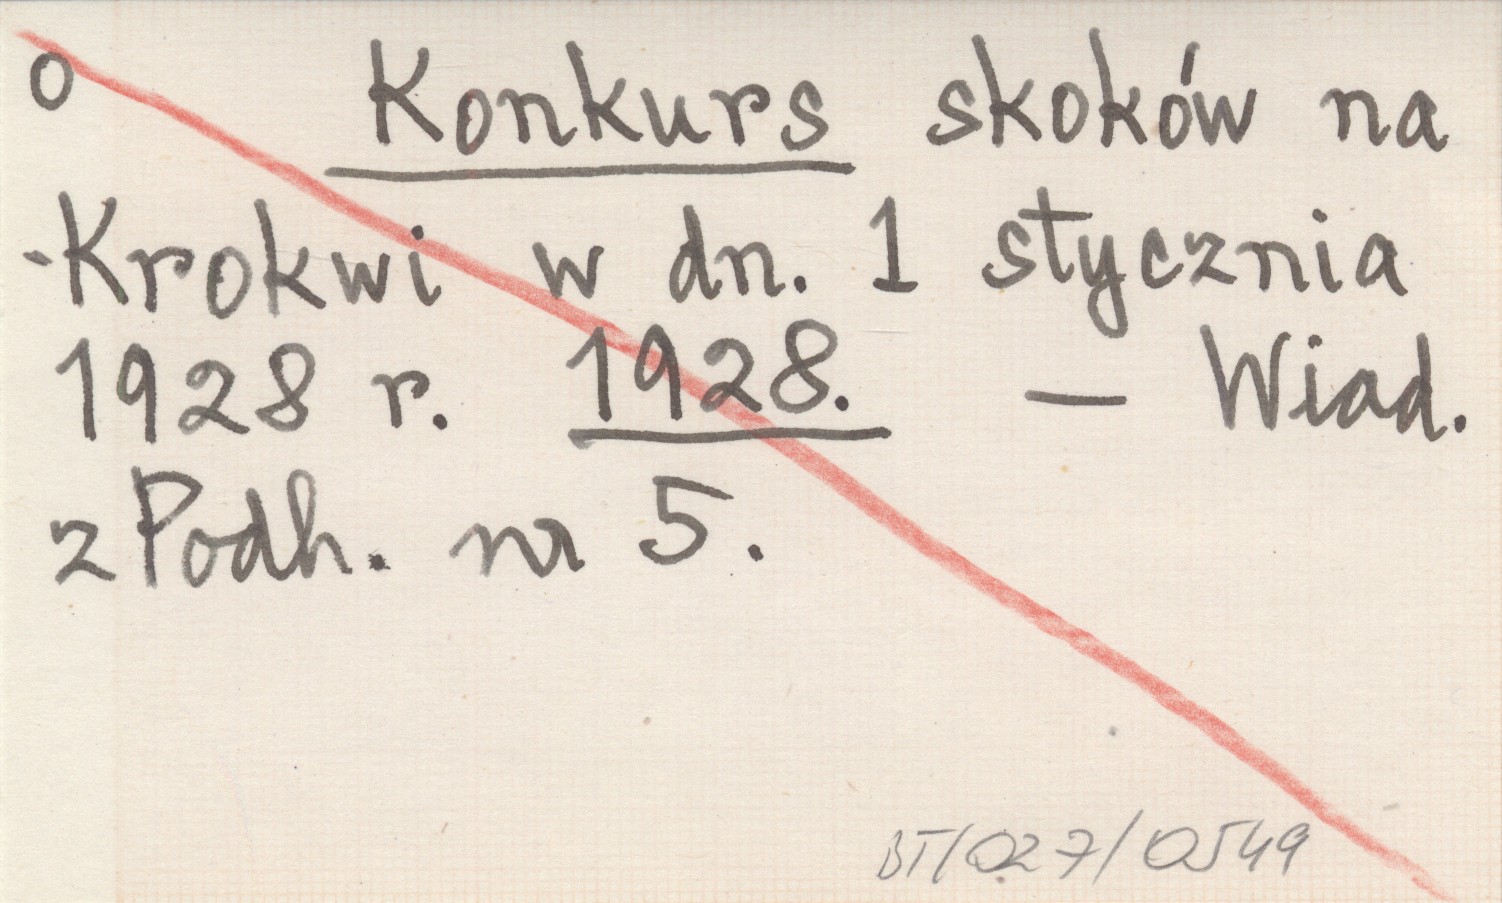 o Konkurs skoków na
Krokwi w dn. 1 stycznia
1928 r. 1928. — Wiad.
z Podh. nr 5.
BT/027/0549